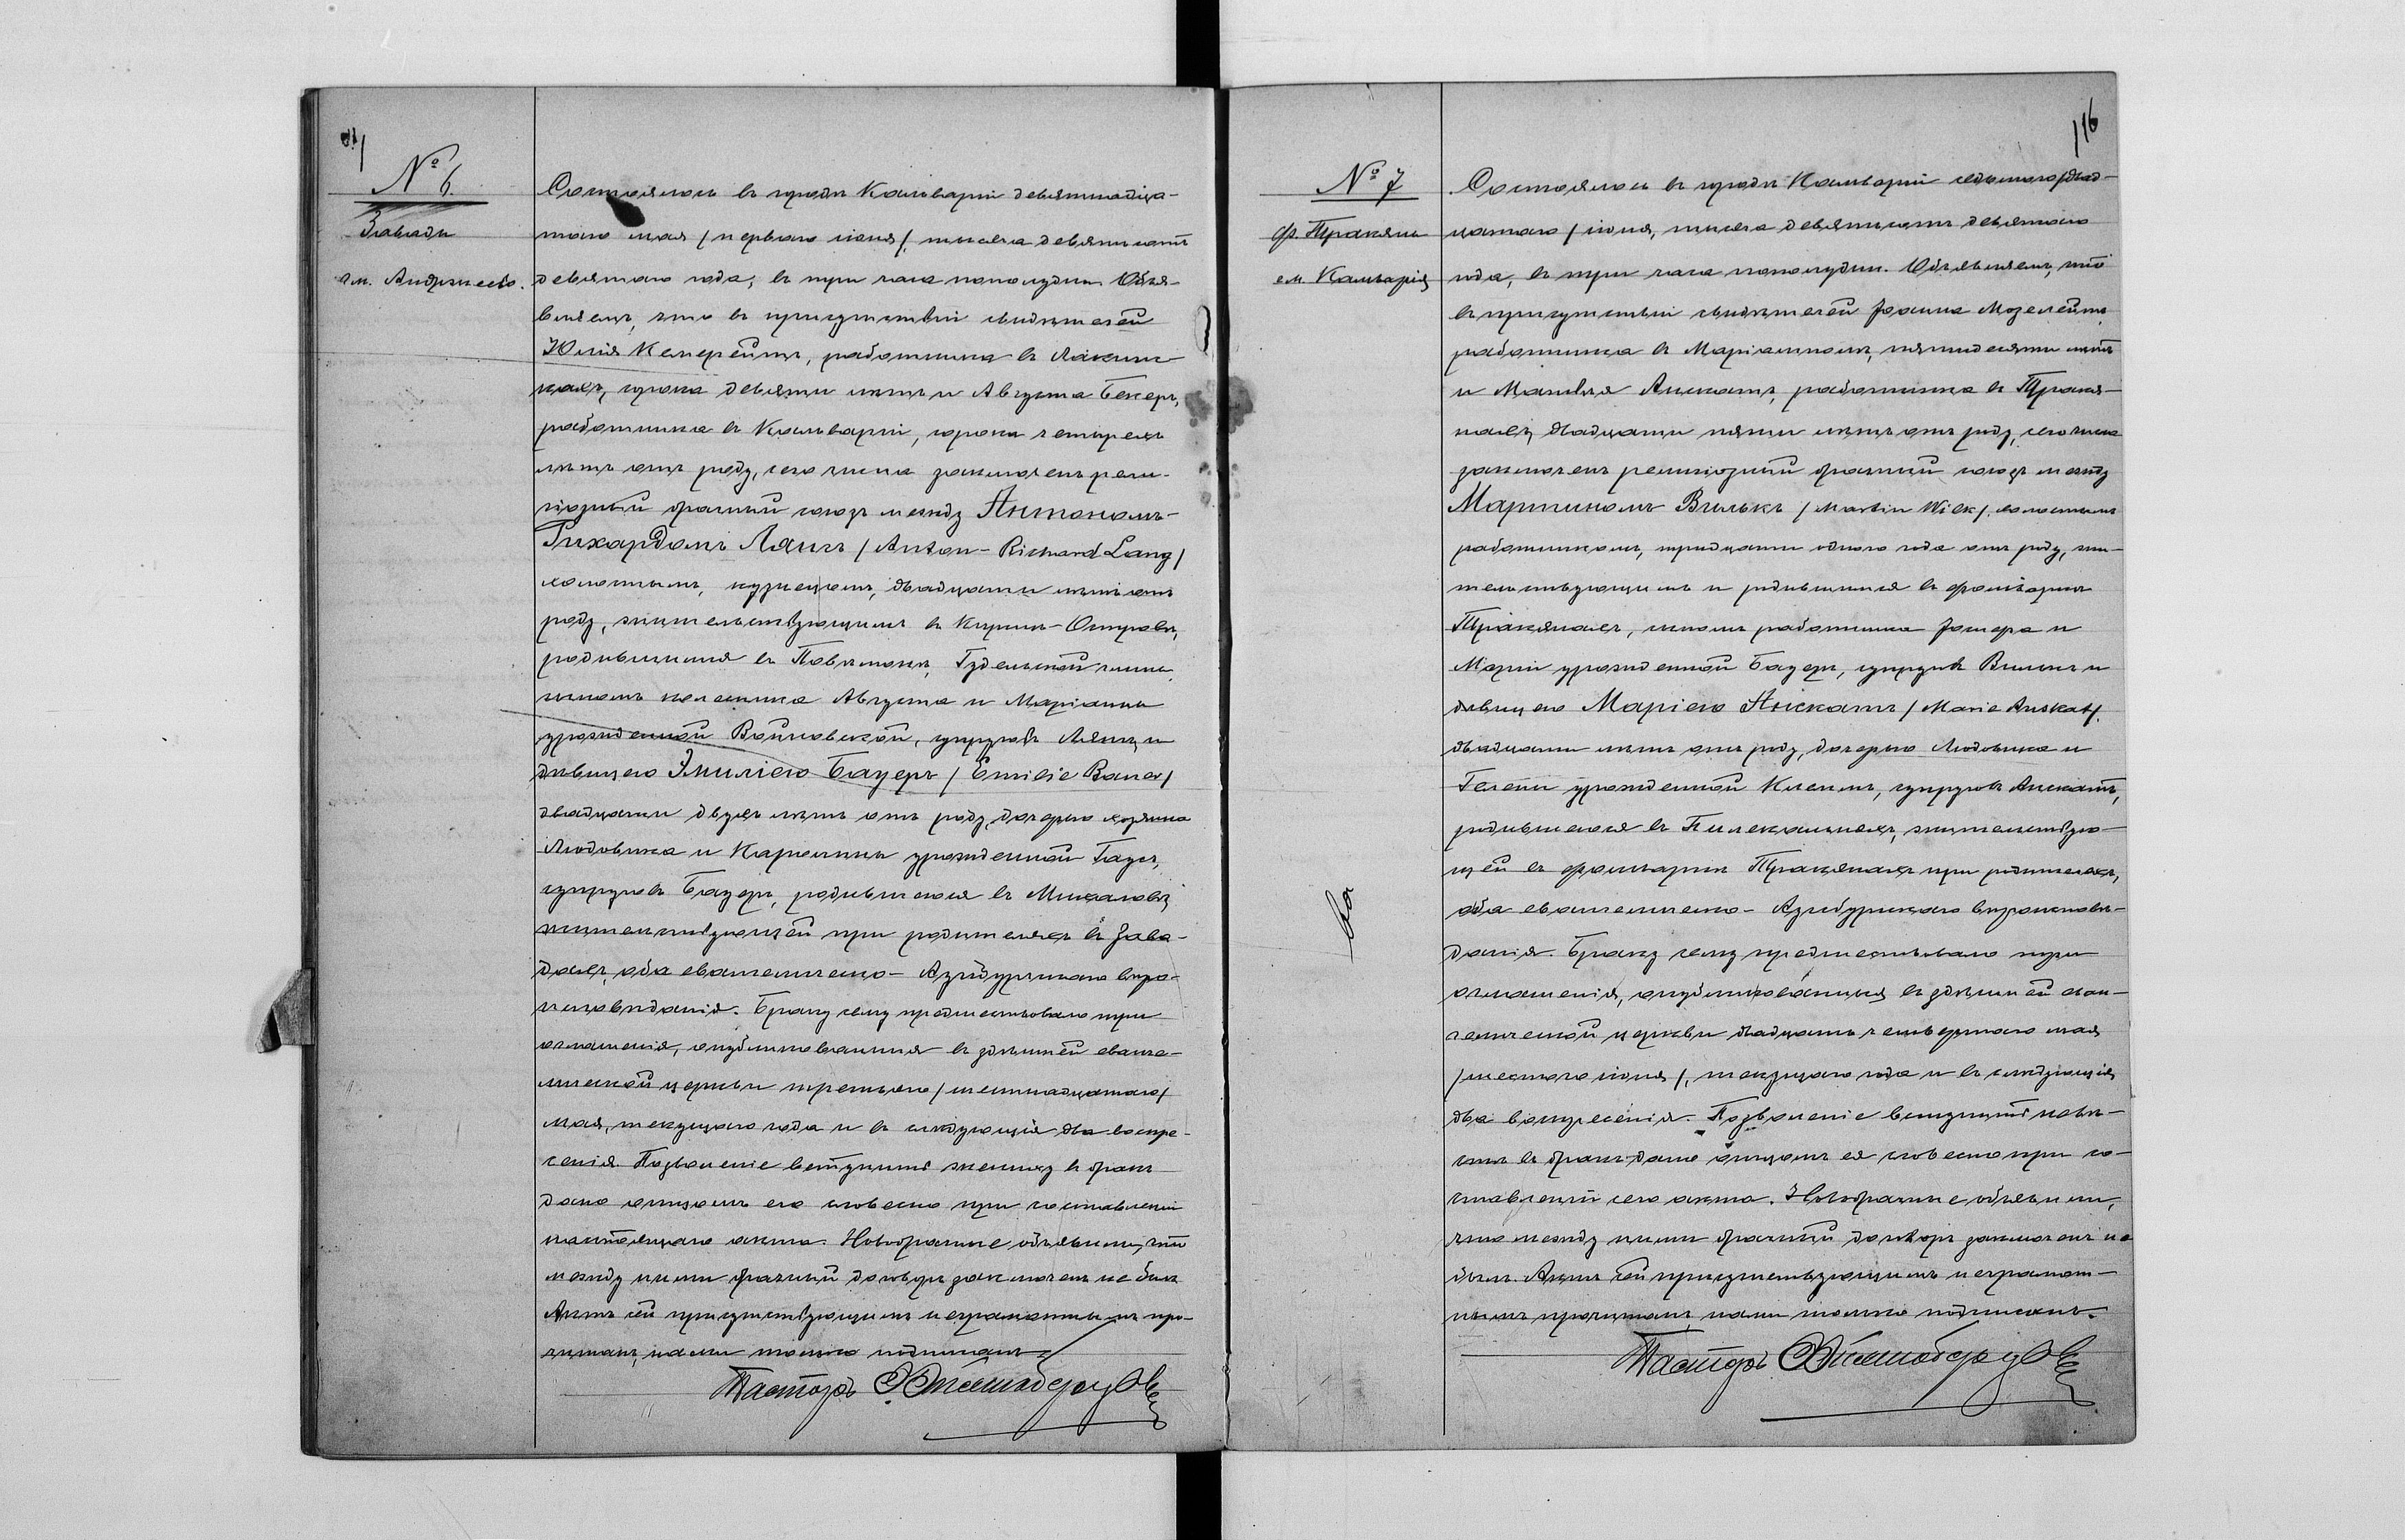 № 6.
Завады
гм. Андржеево.
Состоялось въ городѣ Кальваріи девятнадца-
таго мая /перваго іюня/, тысяча девятьсотъ
девятаго года, въ три часа пополудни. Объя-
вляемъ, что въ присутствіи свидѣтелей
Юлія работника въ
сорока девяти лѣтъ и Августа Бекеръ,
работника въ Кальваріи, сорока четырехъ
лѣтъ отъ роду, сего числа заключенъ рели-
гіозный брачный союзъ между Антономъ-
Рихардомъ Лянгъ /Anton-Richard Lang/
холостымъ, кузнецомъ, двадцати лѣтъ отъ
роду, жительствующимъ въ
родившимся въ Гудельской гмины,
сыномъ Августа и Маріанны
урожденной супруговъ Лянгъ и
дѣвицею Эмиліею Бауеръ /Emilie Bauer/
двадцати двухъ лѣтъ отъ роду, дочерью хозяина
Людовика и Каролины урожденной
супруговъ Бауеръ, родившеюся въ
жительствующей при родителяхъ въ Зава-
дахъ, оба евангелическо-Аугсбургскаго вѣро-
исповѣданія. Браку сему предшествовало три
оглашенія, опубликованныя въ здѣшней еванге-
лической церкви третьяго /шестнадцатаго/
мая, текущаго года и въ слѣдующія два воскре-
сенія. Позволеніе вступить жениху въ бракъ
дано отцомъ его словесно при составленіи
настоящаго акта. Новобрачные объявили, что
между ними брачный договоръ заключенъ не былъ.
Актъ сей присутствующимъ неграмотнымъ про-
читанъ, нами только подписанъ.
Пасторъ
116
№ 7
ф. Тракяны
гм. Кальварія
Состоялось въ городѣ Кальваріи седьмого /двад-
цатаго/ іюня, тысяча девятьсотъ девятаго
года, въ три часа пополудни. Объявляемъ, что
въ присутствіи свидѣтелей Іоанна
работника въ Маріамполѣ, пятидесяти лѣтъ
и Матвѣя Анскатъ, работника въ Трак҃я-
нахъ двадцати пяти лѣтъ отъ роду, сего числа
заключенъ религіозный брачный союзъ между
Мартиномъ Вилькъ /Martin Wilk/, холостымъ
работникомъ, тридцати одного года отъ роду, жи-
тельствующимъ и родившимся въ фольваркѣ
Тракянахъ, сыномъ работника и
Маріи урожденной Бауеръ, супруговъ Вилькъ и
дѣвицею Маріею Анскатъ /Marie Anskat/,
двадцати лѣтъ отъ роду, дочерью Людовика и
Гелены урожденной супруговъ Анскатъ,
родившеюся въ жительствую-
щей въ фольваркѣ Тракянахъ при родителяхъ,
оба евангелическо-Аугсбургскаго вѣроисповѣ-
данія. Браку сему предшествовало три
оглашенія, опубликованныя въ здѣшней еван-
гелической церкви двадцать четвертаго мая
/шестого іюня/, текущаго года и въ слѣдующія
два воскресенія. Позволеніе вступить невѣ-
стѣ въ бракъ дано отцомъ ея словесно при со-
ставленіи сего акта. Новобрачные объявили,
что между ними брачный договоръ заключенъ не
былъ. Актъ сей присутствующимъ неграмот-
нымъ прочитанъ, нами только подписанъ.
Пасторъ